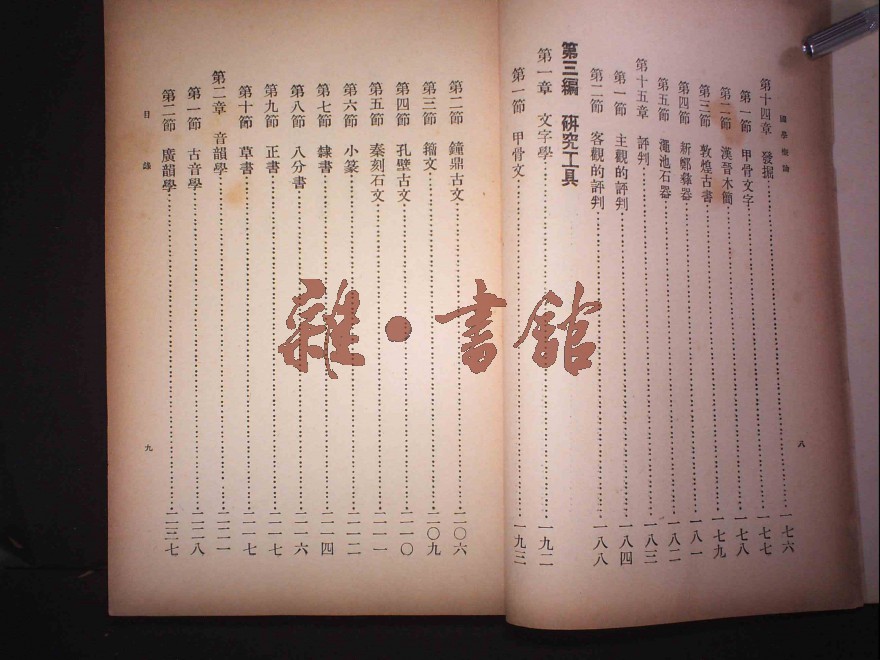 國學概論
第十四章 發掘 一七六
第一節 甲骨文字 一七七
第二節 漢晉木簡 一七八
第三節 敦煌古書 一七九
第四節 新鄭彝器 一八一
第五節 澠池石器 一八二
第十五章 評判 一八三
第一節 主觀的評判 一八四
第二節 客觀的評判 一八八
第三編 硏究工具
第一章 文字學 一九二
第一節 甲骨文 一九三
八
第二節 鐘鼎古文 二〇六
第三節 籀文 二〇九
第四節 孔壁古文 二一〇
第五節 秦刻石文 二一一
第六節 小篆 二一二
第七節 隸書 二一四
第八節 八分書 二一六
第九節 正書 二一七
第十節 草書 二一七
第二章 音韻學 二二一
第一節 古音學 二二八
第二節 廣韻學 二三七
目錄
九
雜·書館